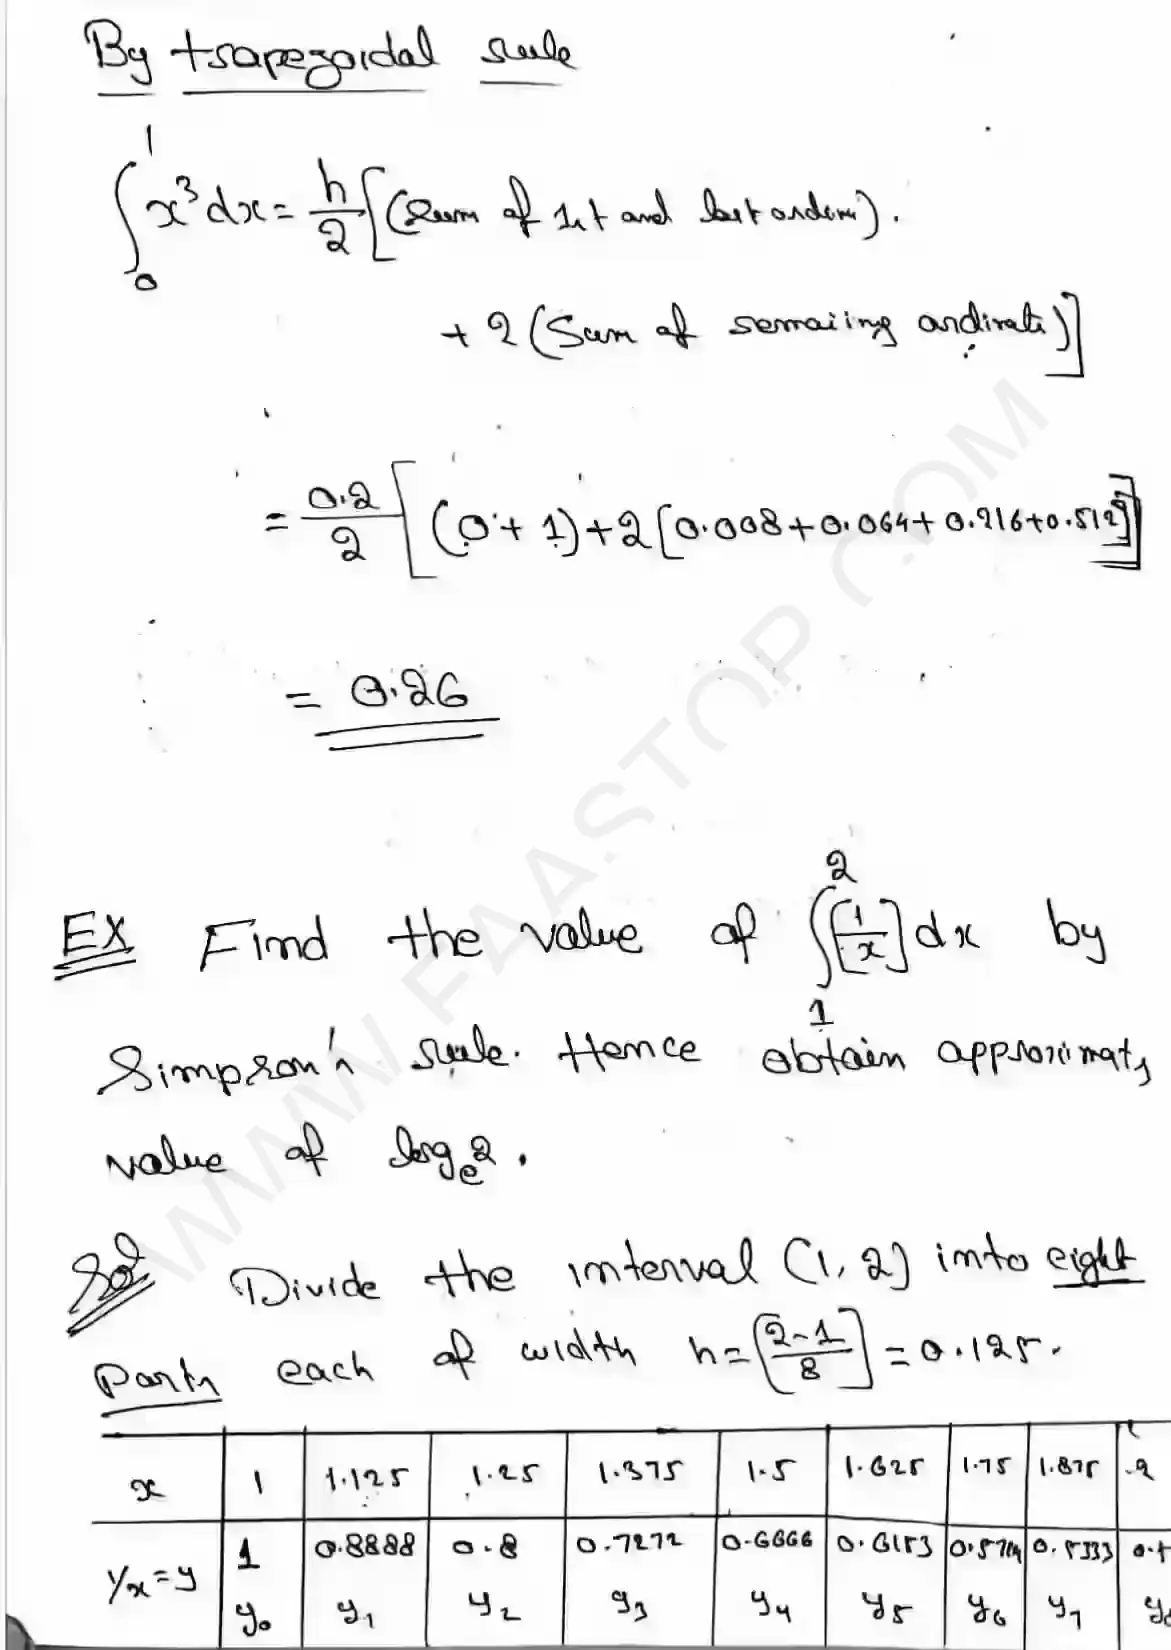 By trapezoidal rule
∫₀¹ x³dx = h/2 [(Sum of 1st and last ordern).
+ 2 (Sum of remaiing ordinate)]
= 0.2/2 [(0 + 1) + 2 [0.008 + 0.064 + 0.216 + 0.512]]
= 0.26
EX Find the value of ∫₁² [1/x] dx by
Simpson's rule. Hence obtain approximate
value of logₑ2.
Sol Divide the interval (1, 2) into eight
Parts each of width h = [2-1/8] = 0.125.
x 1 1.125 1.25 1.375 1.5 1.625 1.75 1.875 2
1/x = y 1 0.8888 0.8 0.7272 0.6666 0.6153 0.5714 0.5333
y₀ y₁ y₂ y₃ y₄ y₅ y₆ y₇ y₈
WWW.FAASTOP.COM